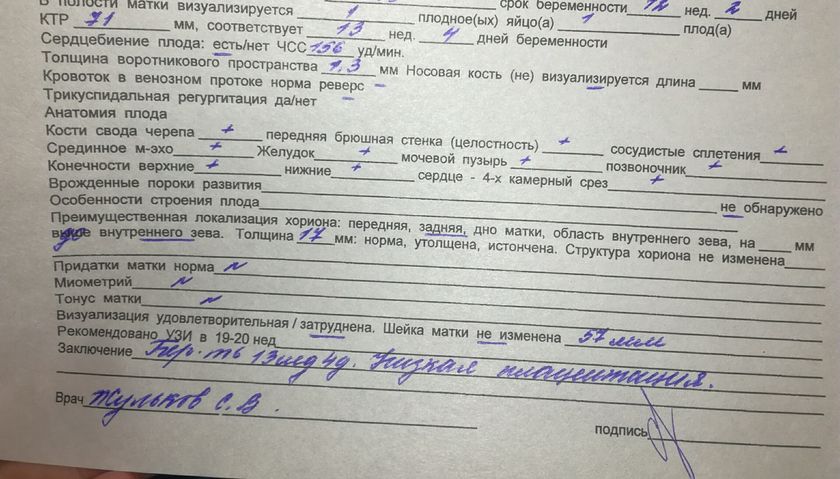 В полости матки визуализируется 1 плодное(ых) яйцо(а) 1 срок беременности 12 нед. 2 дней
плод(а)
КТР 71 мм, соответствует 13 нед. 4 дней беременности
Сердцебиение плода: есть/нет ЧСС 156 уд/мин.
Толщина воротникового пространства 1,3 мм Носовая кость (не) визуализируется длина ____ мм
Кровоток в венозном протоке норма реверс -
Трикуспидальная регургитация да/нет -
Анатомия плода
Кости свода черепа + передняя брюшная стенка (целостность) + сосудистые сплетения +
Срединное м-эхо + Желудок + мочевой пузырь + позвоночник +
Конечности верхние + нижние + сердце - 4-х камерный срез +
Врожденные пороки развития
Особенности строения плода не обнаружено
Преимущественная локализация хориона: передняя, задняя, дно матки, область внутреннего зева, на ____ мм
выше внутреннего зева. Толщина 17 мм: норма, утолщена, истончена. Структура хориона не изменена
Придатки матки норма N
Миометрий N
Тонус матки N
Визуализация удовлетворительная / затруднена. Шейка матки не изменена 57 мм
Рекомендовано УЗИ в 19-20 нед
Заключение Бер-ть 13 нед 4д. Низкая плацентация.
Врач Жульков С.В.
подпись